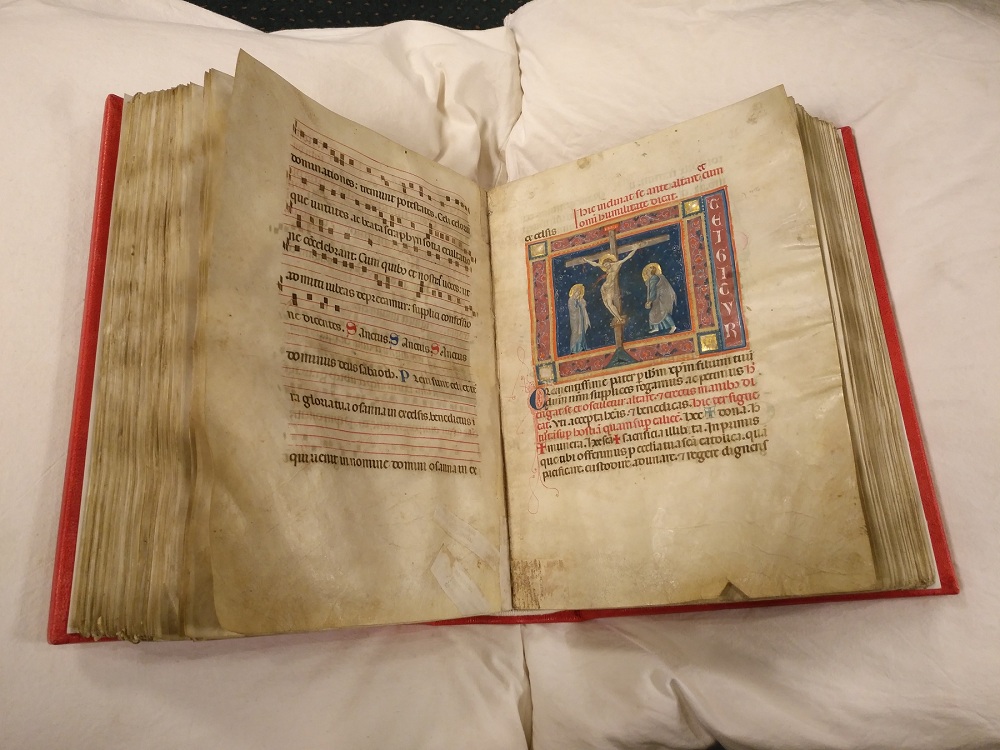 dominationes: tremunt potestates. Celi celorū
que uirtutes. ac beata seraphyn socia exultatio
ne cōcelebrant. Cum quibꝰ et nostras uoces: ut
admitti iubeas deprecamur: supplici confessio
ne dicentes. Sanctus. Sanctus. Sanctus
dominus deus sabaoth. Pleni sunt celi et ter
ra gloria tua osanna in excelsis. benedictus
qui uenit in nomine domini osanna in ex
hic inclinat se ante altare: et cum
omi humilitate dicat.
excelsis
TE IGITVR
clementissime pater p ihm xpm filium tuū
dnm nrm supplices rogamus ac petimus
et osculetur altare. et erectus manibꝰ
uti accepta habeas et benedicas. hic
sup hostiā quam sup calicē. hec ✝ dona. h
✝ munera. hec scā ✝ sacrificia illibata. In primis
que tibi offerimus p ecclesia tua scā catolica. quā
pacificare. custodire. adunare. et regere digneris